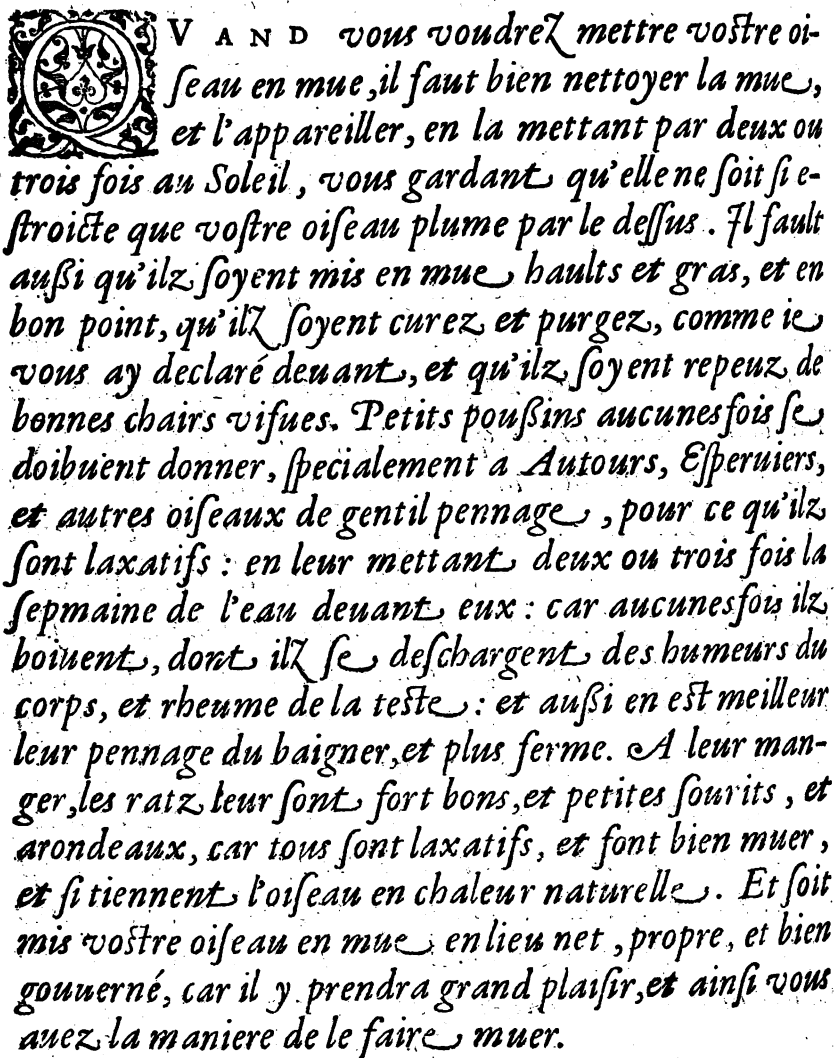 QVAND vous voudrez mettre vostre oi-
seau en mue, il faut bien nettoyer la mue,
et l'appareiller, en la mettant par deux ou
trois fois au Soleil, vous gardant qu'elle ne soit si e-
stroicte que vostre oiseau plume par le dessus. Il fault
aussi qu'ilz soyent mis en mue haults et gras, et en
bon point, qu'ilz soyent curez et purgez, comme ie
vous ay declaré deuant, et qu'ilz soyent repeuz de
bonnes chairs vifues. Petits poussins aucunesfois se
doibuent donner, specialement a Autours, Esperuiers,
et autres oiseaux de gentil pennage, pour ce qu'ilz
sont laxatifs : en leur mettant deux ou trois fois la
sepmaine de l'eau deuant eux : car aucunesfois ilz
boiuent, dont ilz se deschargent des humeurs du
corps, et rheume de la teste : et aussi en est meilleur
leur pennage du baigner, et plus ferme. A leur man-
ger, les ratz leur sont fort bons, et petites sourits, et
arondeaux, car tous sont laxatifs, et font bien muer,
et si tiennent l'oiseau en chaleur naturelle. Et soit
mis vostre oiseau en mue en lieu net, propre, et bien
gouuerné, car il y prendra grand plaisir, et ainsi vous
auez la maniere de le faire muer.